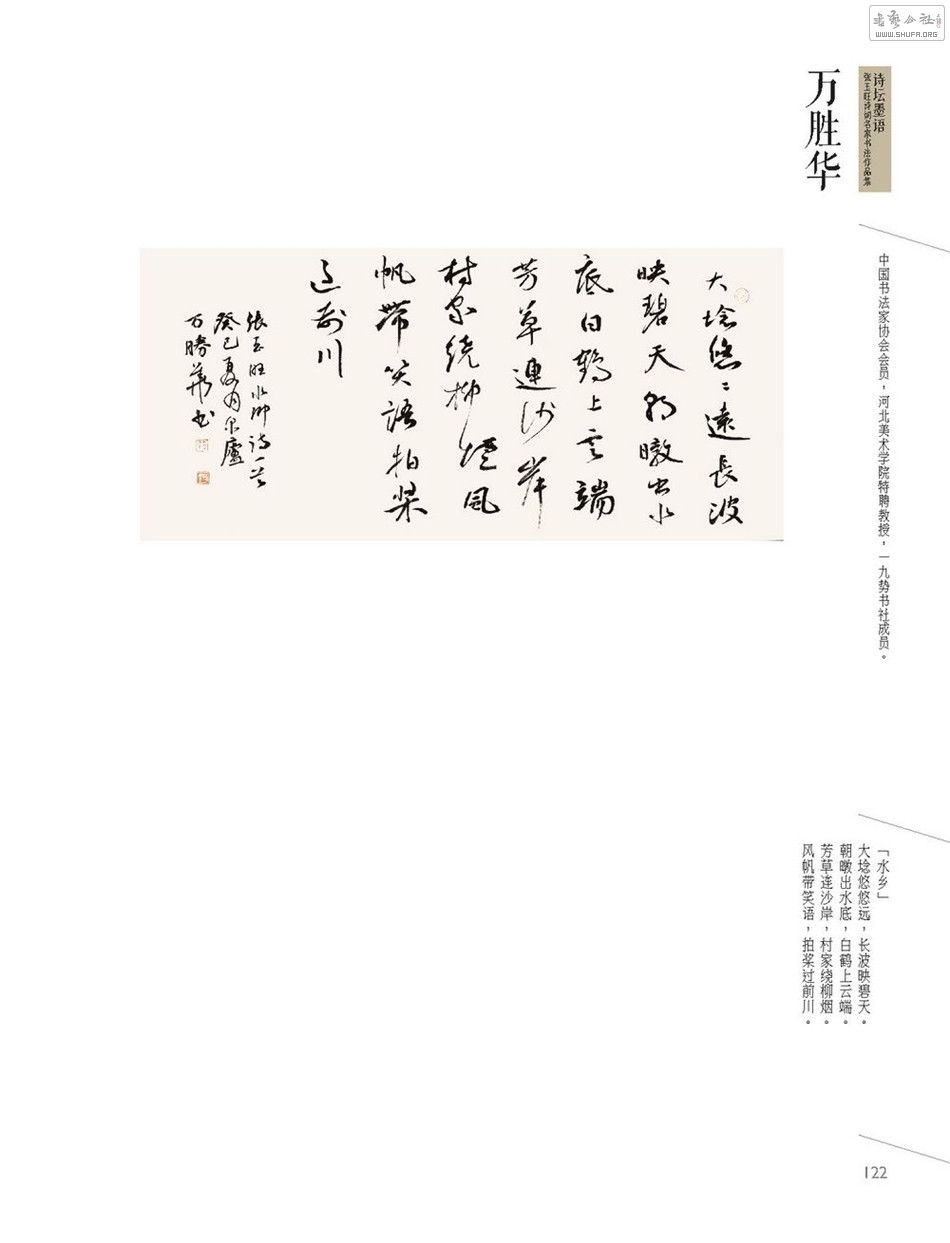 WWW.SHUFA.ORG
诗坛墨语
张玉旺诗词名家书法作品集
万胜华
中国书法家协会会员，河北美术学院特聘教授，一九势书社成员。
大埝悠〻遠長波
映碧天朝暾出水
底白鹤上云端
芳草連沙岸
村家绕柳煙風
帆带笑語拍桨
过前川
张玉旺水鄉詩一首
癸巳夏月於尔廬
万勝華书
「水乡」
大埝悠悠远，长波映碧天。
朝暾出水底，白鹤上云端。
芳草连沙岸，村家绕柳烟。
风帆带笑语，拍桨过前川。
122